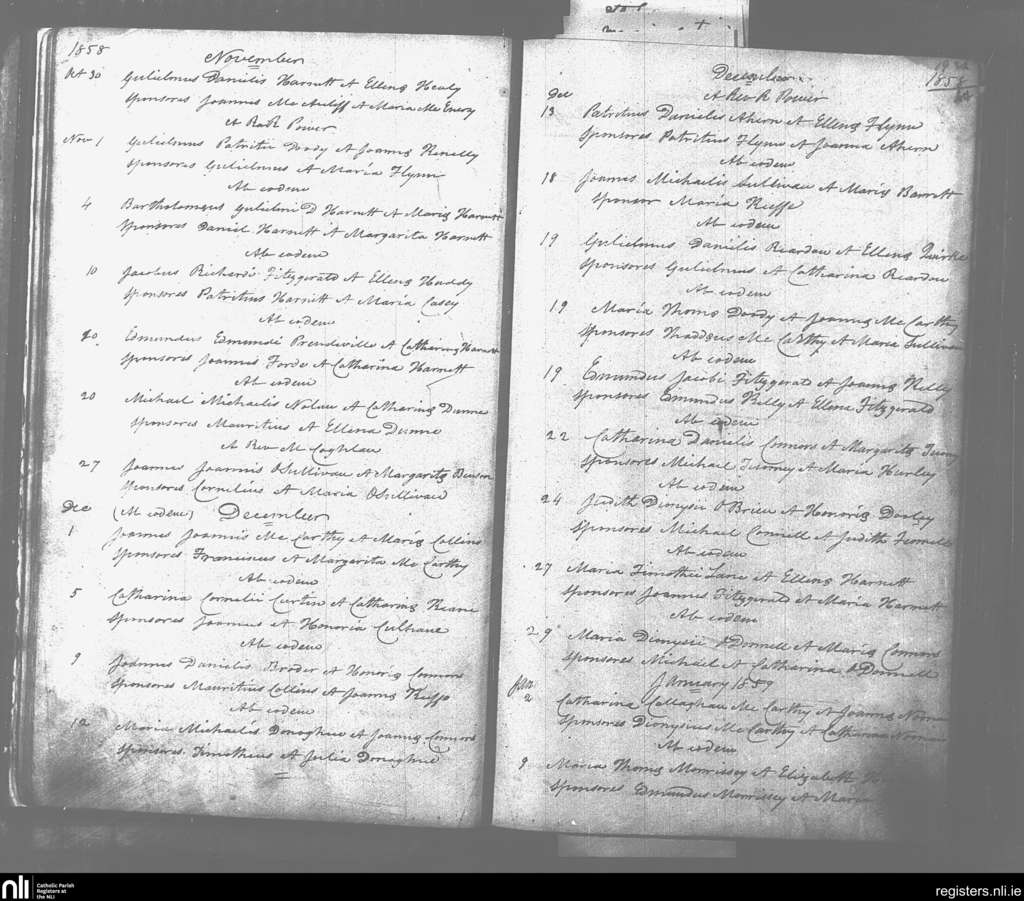 1858
November
Oct 30 Gulielmus Danielis Harnett & Ellena Healy
Sponsores Joannes Mc Auliff & Maria Mc Enery
A Rev R Power
Nov 1 Gulielmus Patritii Doody & Joanna
Sponsores Gulielmus & Maria Flynn
Ab eodem
4 Bartholomeus Gulielmi D Harnett & Maria Harnett
Sponsores Daniel Harnett & Margarita Harnett
Ab eodem
10 Jacobus Richardi Fitzgerald & Ellena
Sponsores Patritius Harnett & Maria Casey
Ab eodem
20 Edmundus Edmundi Prendeville & Catharina Harnett
Sponsores Joannes Forde & Catharina Harnett
Ab eodem
20 Michael Michaelis Nolan & Catharina Dunne
Sponsores Mauritius & Ellena Dunne
A Rev M Coghlan
27 Joannes Joannis OSullivan & Margarita
Sponsores Cornelius & Maria OSullivan
Dec (Ab eodem) December
1 Joannes Joannis Mc Carthy & Maria Collins
Sponsores Franciscus & Margarita Mc Carthy
Ab eodem
5 Catharina Cornelii Curtin & Catharina Keane
Sponsores Joannes & Honoria Culhane
Ab eodem
9 Joannes Danielis Broder & Honoria Connors
Sponsores Mauritius Collins & Joanna Keeffe
Ab eodem
12 Maria Michaelis Donoghue & Joanna Connors
Sponsores Timotheus & Julia Donoghue
1858
December
Dec A Rev R Power
13 Patritius Danielis Ahern & Ellena Flynn
Sponsores Patritius Flynn & Joanna Ahern
Ab eodem
18 Joannes Michaelis Sullivan & Maria Barrett
Sponsor Maria Keeffe
Ab eodem
19 Gulielmus Danielis Reardon & Ellena Quirke
Sponsores Gulielmus & Catharina Reardon
Ab eodem
19 Maria Thoma Doody & Joanna Mc Carthy
Sponsores Thaddeus Mc Carthy & Maria Sullivan
Ab eodem
19 Edmundus Jacobi Fitzgerald & Joanna Kelly
Sponsores Edmundus Kelly & Elena Fitzgerald
Ab eodem
22 Catharina Danielis Connors & Margarita
Sponsores Michael Twomey & Maria Hurley
Ab eodem
24 Judith Dionysii OBrien & Honoria Dooley
Sponsores Michael Connell & Judith
Ab eodem
27 Maria Timothei Lane & Ellena Harnett
Sponsores Joannes Fitzgerald & Maria Harnett
Ab eodem
29 Maria Dionysii ODonnell & Maria Connors
Sponsores Michael & Catharina ODonnell
January 1859
Jan
2 Catharina Callaghan Mc Carthy & Joanna
Sponsores Dionysius Mc Carthy & Catharina
Ab eodem
9 Maria Thoma Morrissey & Elizabeth
Sponsores Edmundus Morrissey & Maria
nli
Catholic Parish
Registers at
the NLI
registers.nli.ie